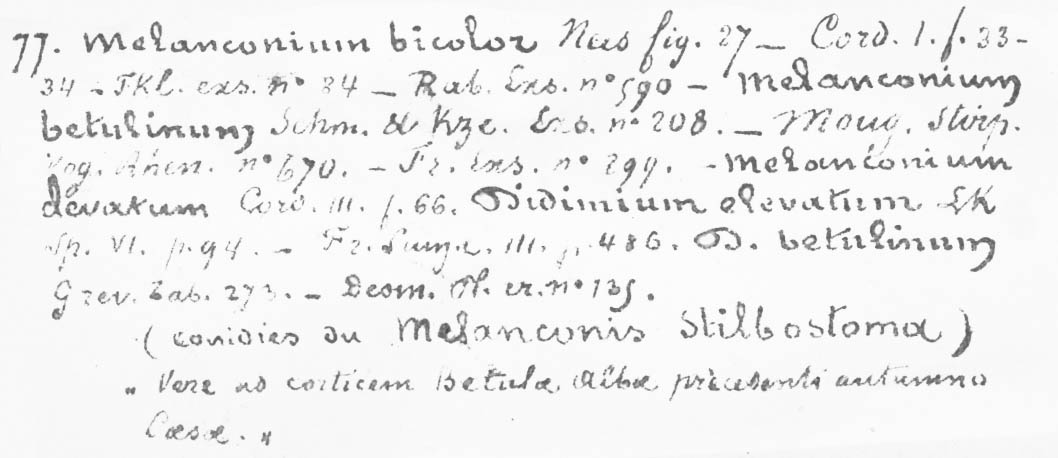 77. Melanconium bicolor Nees fig. 27 — Cord. 1. f. 33-
34 - Fkl. exs. n° 84 — Rab. Exs. n° 590 - Melanconium
betulinum Schm. & Kze. Exs. n° 208. — Moug. Stirp.
Vog. Rhen. n° 670. - Fr. Exs. n° 299. - Melanconium
elevatum Cord. III. f. 66. Didimium elevatum LK
Sp. VI. p. 94. - Fr. III. p. 486. D. betulinum
Grev. Tab. 273. - Desm. Pl. cr. n° 135.
(conidies du Melanconis Stilbostoma)
" Vere ad corticem Betulæ Albæ præcedenti autumno
Cæsæ. "